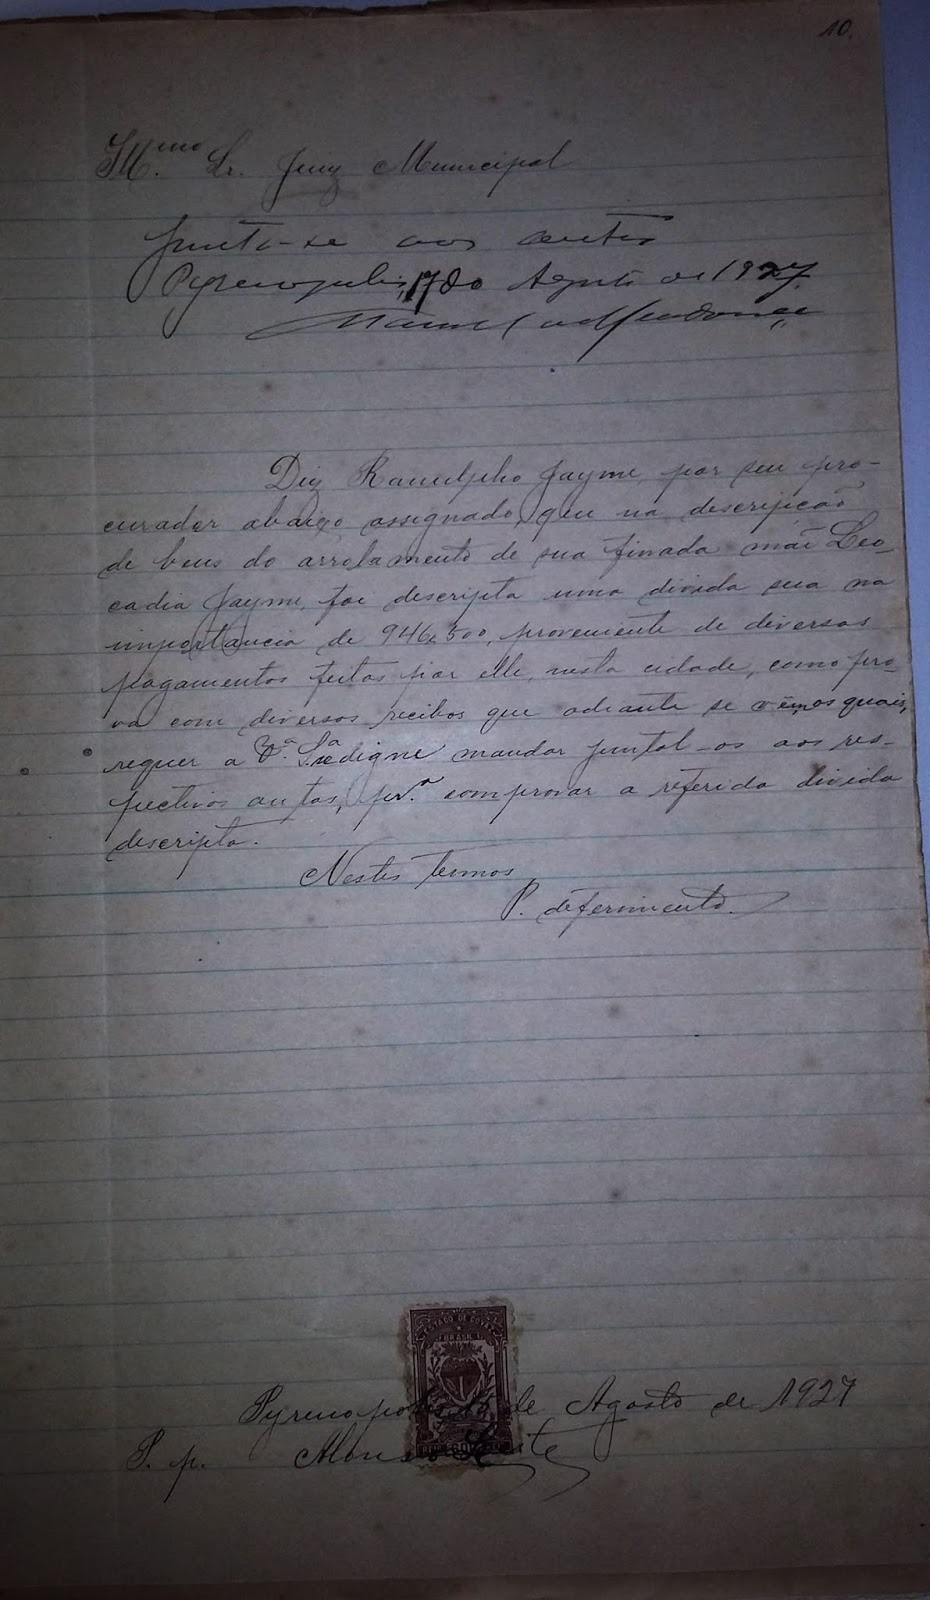 10.
Ill.mo Sr. Juiz Municipal
Junte-se aos autos
Pyrenopolis, 17 do Agosto de 1927.
Manuel de Mendonça
Diz Ranulpho Jayme, por seu pro-
curador abaixo assignado, que na descripção
de bens do arrolamento de sua finada mãi Leo-
cadia Jayme, foi descripta uma divida sua na
importancia de 946,500, proveniente de diversos
pagamentos feitos por elle, nesta cidade, como pro-
va com diversos recibos que adiante se vêm, os quais,
requer a V.ª S.ª se digne mandar juntal-os aos res-
pectivos autos, p.ª comprovar a referida divida
descripta.
Nestes termos
P. deferimento.
ESTADO DE GOYAZ
BRASIL
Pyrenopolis, de Agosto de 1927
P. p. Leite